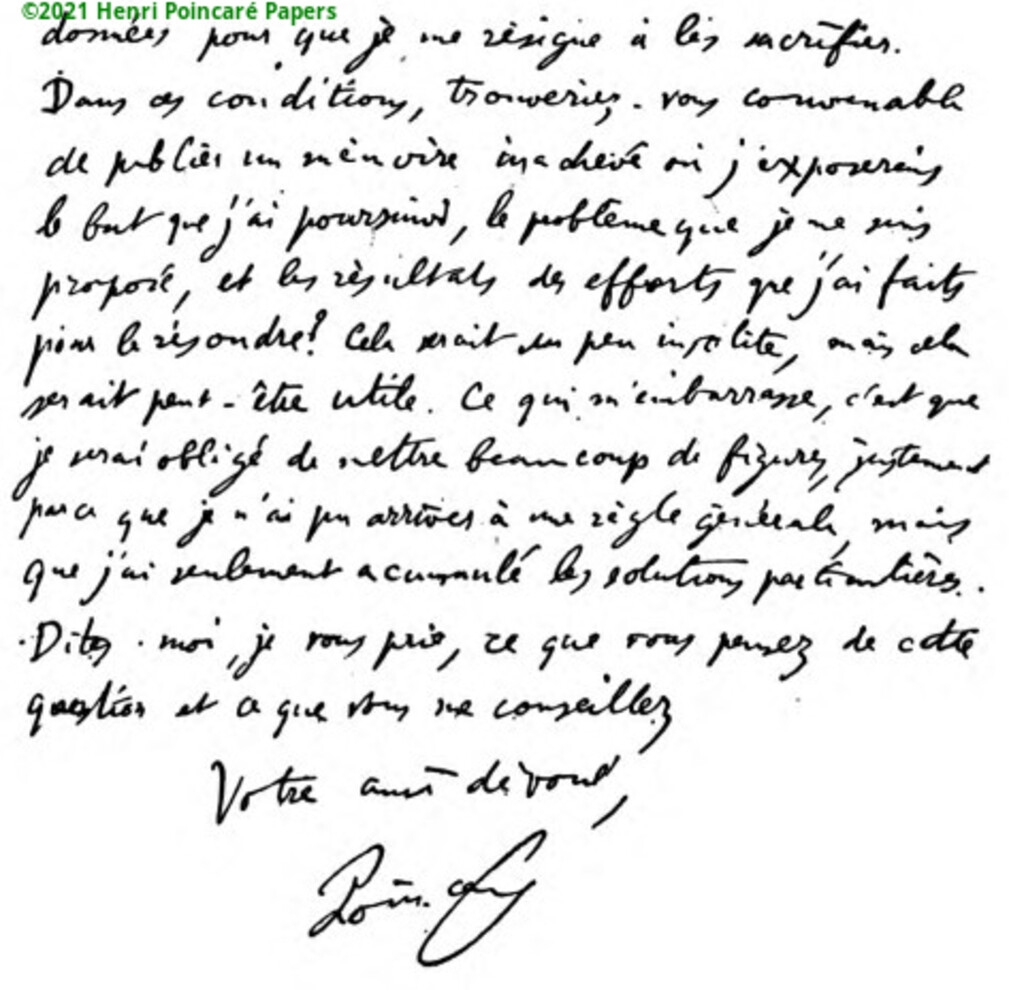 ©2021 Henri Poincaré Papers
données pour que je me résigne à les sacrifier.
Dans ces conditions, trouveriez-vous convenable
de publier un mémoire inachevé où j'exposerais
le but que j'ai poursuivi, le problème que je me suis
proposé, et les résultats des efforts que j'ai faits
pour le résoudre? Cela serait un peu insolite, mais cela
serait peut-être utile. Ce qui m'embarrasse, c'est que
je serai obligé de mettre beaucoup de figures, justement
parce que je n'ai pu arriver à une règle générale, mais
que j'ai seulement accumulé les solutions particulières.
Dites-moi, je vous prie, ce que vous pensez de cette
question et ce que vous me conseillez
Votre ami dévoué,
Poincaré